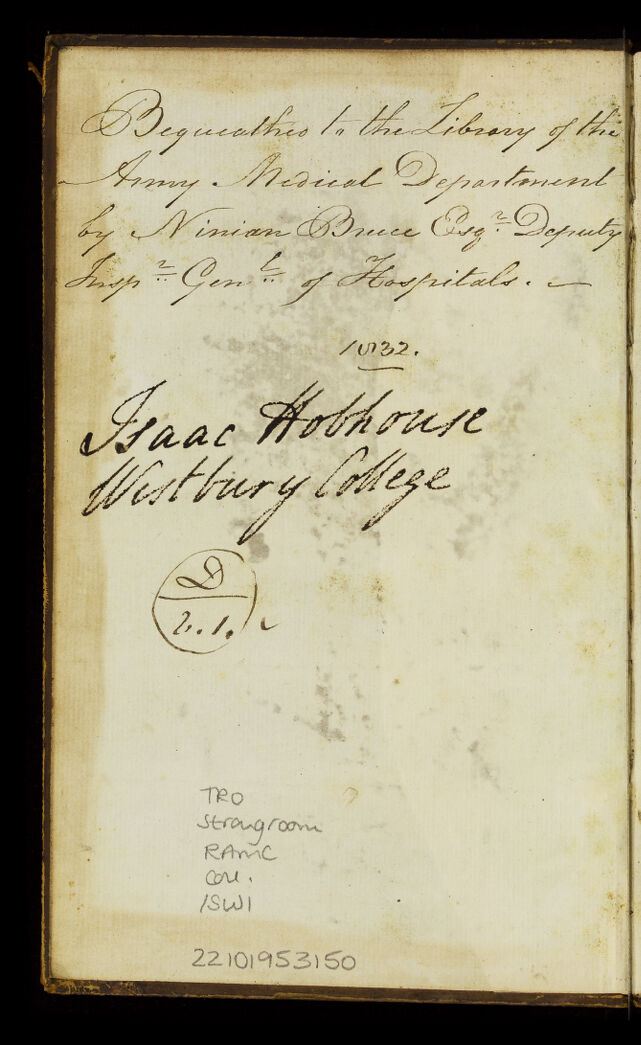 Bequeathed to the Library of the
Army Medical Department
by Ninian Bruce Esqr. Deputy
Inspr. Genl. of Hospitals. —
1832.
Isaac Hobhouse
Westbury College
D
2.1.
TRO
Strongroom
RAMC
Coll.
/SWI
22101953150